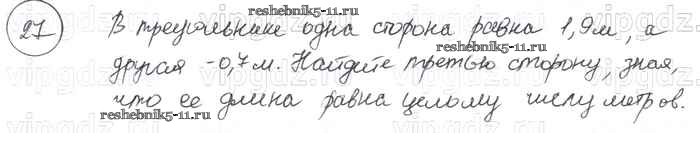 reshebnik5-11.ru
27 В треугольнике одна сторона равна 1,9м, а
другая -0,7м. Найдите третью сторону, зная,
что ее длина равна целому числу метров.
reshebnik5-11.ru
reshebnik5-11.ru